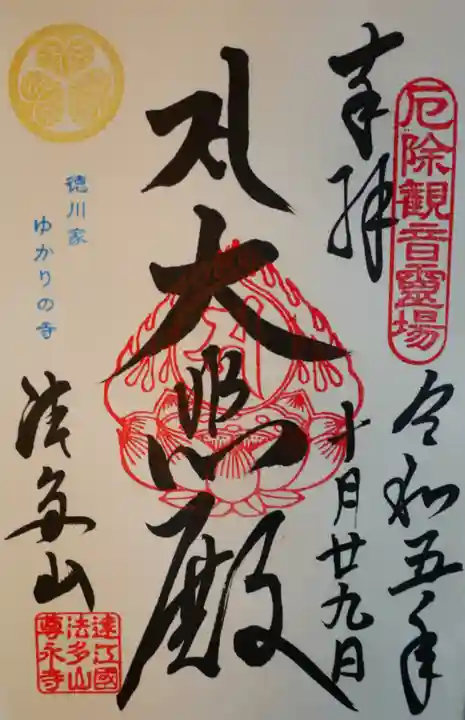 厄除観音霊場
奉拝
令和五年
十月廿九日
大悲殿
徳川家
ゆかりの寺
法多山
遠江國
法多山
尊永寺